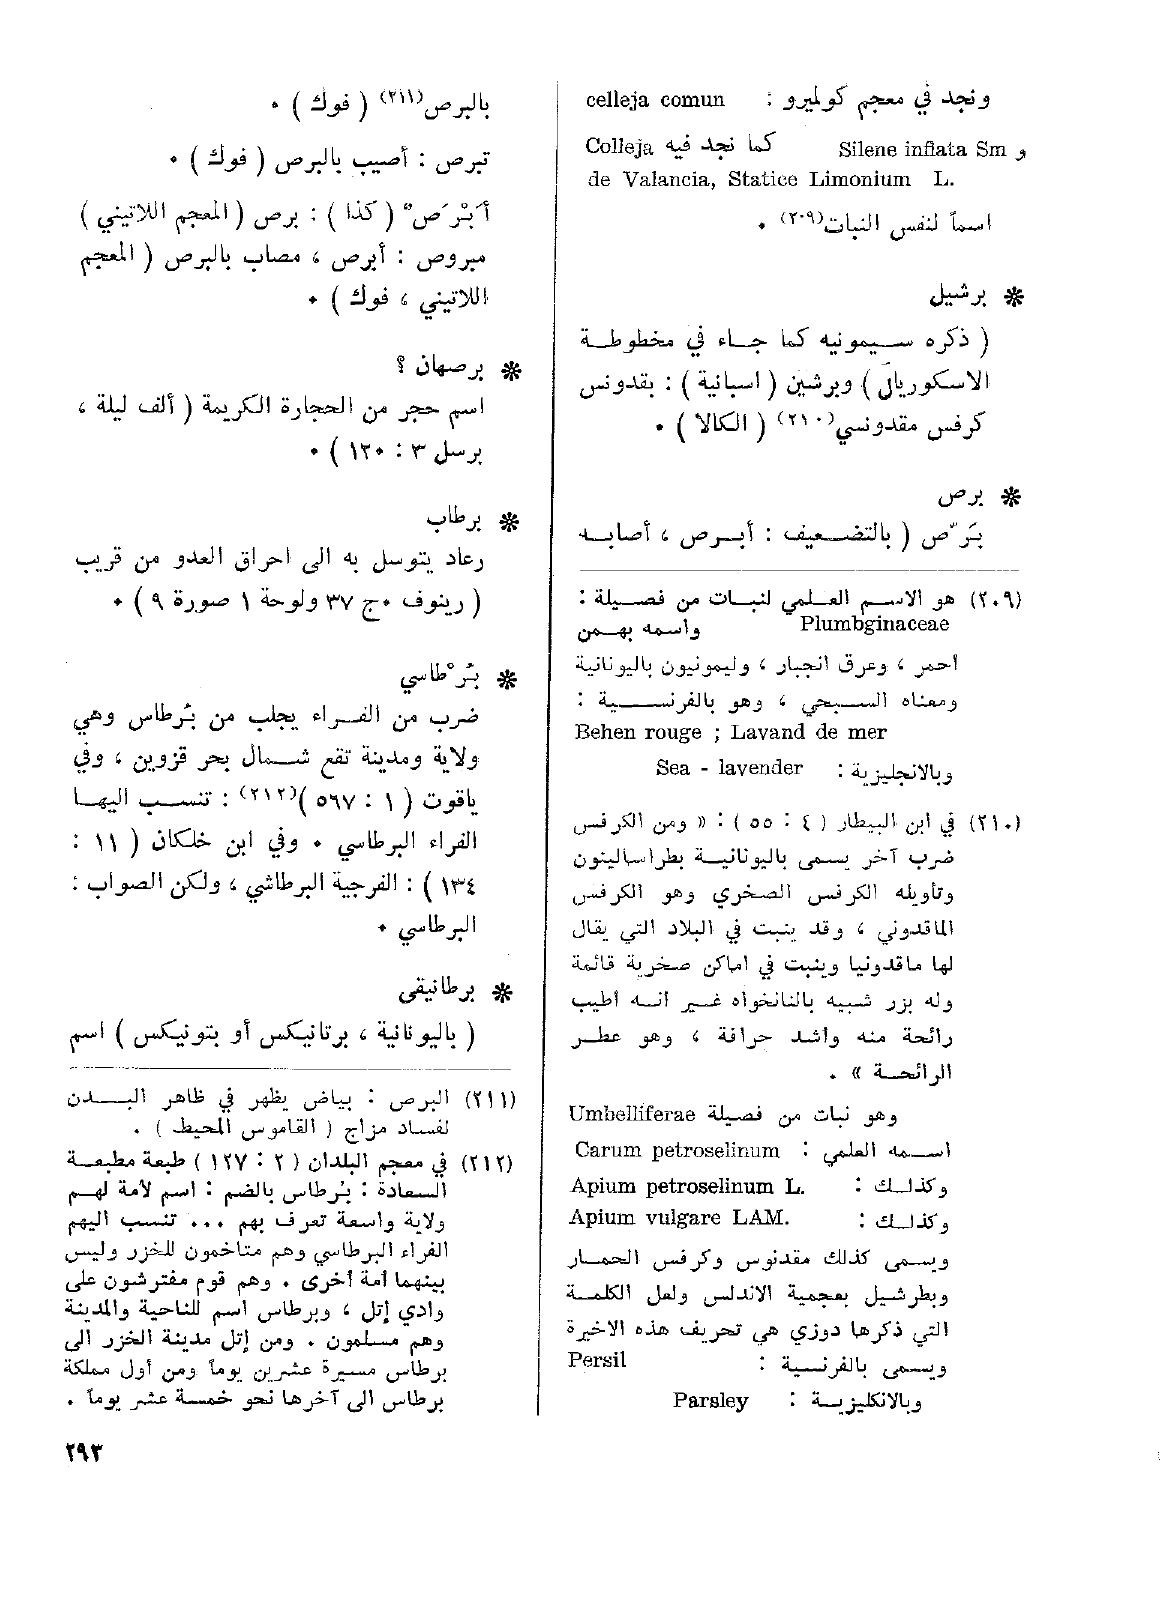 ونجد في معجم كولميرو : celleja comun
و Silene inflata Sm كما نجد فيه Colleja
de Valancia, Statice Limonium L.
اسماً لنفس النبات(٢٠٩) •
❋ برشيل
( ذكره سيمونيه كما جاء في مخطوطة
الاسكوريال ) وبرشين ( اسبانية ) : بقدونس
كرفس مقدونسي(٢١٠) ( الكالا ) •
❋ برص
بَرّص ( بالتضعيف : أبرص ، أصابه
(٢٠٩) هو الاسم العلمي لنبات من فصيلة :
Plumbginaceae واسمه بهمن
أحمر ، وعرق انجبار ، وليمونيون باليونانية
ومعناه السبحي ، وهو بالفرنسية :
Behen rouge ; Lavand de mer
وبالانجليزية : Sea - lavender
(٢١٠) في ابن البيطار ( ٤ : ٥٥ ) : « ومن الكرفس
ضرب آخر يسمى باليونانية بطراسالينون
وتأويله الكرفس الصخري وهو الكرفس
الماقدوني ، وقد ينبت في البلاد التي يقال
لها ماقدونيا وينبت في اماكن صخرية قائمة
وله بزر شبيه بالنانخواه غير انه أطيب
رائحة منه واشد حرافة ، وهو عطر
الرائحة » .
وهو نبات من فصيلة Umbelliferae
اسمه العلمي : Carum petroselinum
وكذلك : Apium petroselinum L.
وكذلك : Apium vulgare LAM.
ويسمى كذلك مقدنوس وكرفس الحمار
وبطرشيل بعجمية الاندلس ولعل الكلمة
التي ذكرها دوزي هي تحريف هذه الاخيرة
ويسمى بالفرنسية : Persil
وبالانكليزية : Parsley
بالبرص(٢١١) ( فوك ) •
تبرص : أصيب بالبرص ( فوك ) •
أَبْرَصٌ ( كذا ) : برص ( المعجم اللاتيني )
مبروص : أبرص ، مصاب بالبرص ( المعجم
اللاتيني ، فوك ) •
❋ برصهان ؟
اسم حجر من الحجارة الكريمة ( ألف ليلة ،
برسل ٣ : ١٢٠ ) •
❋ برطاب
رعاد يتوسل به الى احراق العدو من قريب
( رينوف •ج ٣٧ ولوحة ١ صورة ٩ ) •
❋ بُرْطاسي
ضرب من الفراء يجلب من بُرطاس وهي
ولاية ومدينة تقع شمال بحر قزوين ، وفي
ياقوت ( ١ : ٥٦٧ )(٢١٢) : تنسب اليها
الفراء البرطاسي • وفي ابن خلكان ( ١١ :
١٣٤ ) : الفرجية البرطاشي ، ولكن الصواب :
البرطاسي •
❋ برطانيقى
( باليونانية ، برتانيكس أو بتونيكس ) اسم
(٢١١) البرص : بياض يظهر في ظاهر البدن
لفساد مزاج ( القاموس المحيط ) .
(٢١٢) في معجم البلدان ( ٢ : ١٢٧ ) طبعة مطبعة
السعادة : بُرطاس بالضم : اسم لامة لهم
ولاية واسعة تعرف بهم ... تنسب اليهم
الفراء البرطاسي وهم متاخمون للخزر وليس
بينهما أمة أخرى . وهم قوم مفترشون على
وادي إتل ، وبرطاس اسم للناحية والمدينة
وهم مسلمون . ومن إتل مدينة الخزر الى
برطاس مسيرة عشرين يوماً ومن أول مملكة
برطاس الى آخرها نحو خمسة عشر يوماً .
٢٩٣